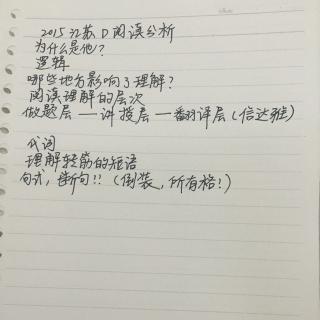 2015 江苏 D 阅读分析
为什么是他!?
逻辑
哪些地方影响了理解?
阅读理解的层次
做题层 — 讲授层 — 翻译层(信达雅)
代词
理解转筋的短语
句式,断句!!(倒装,所有格!)